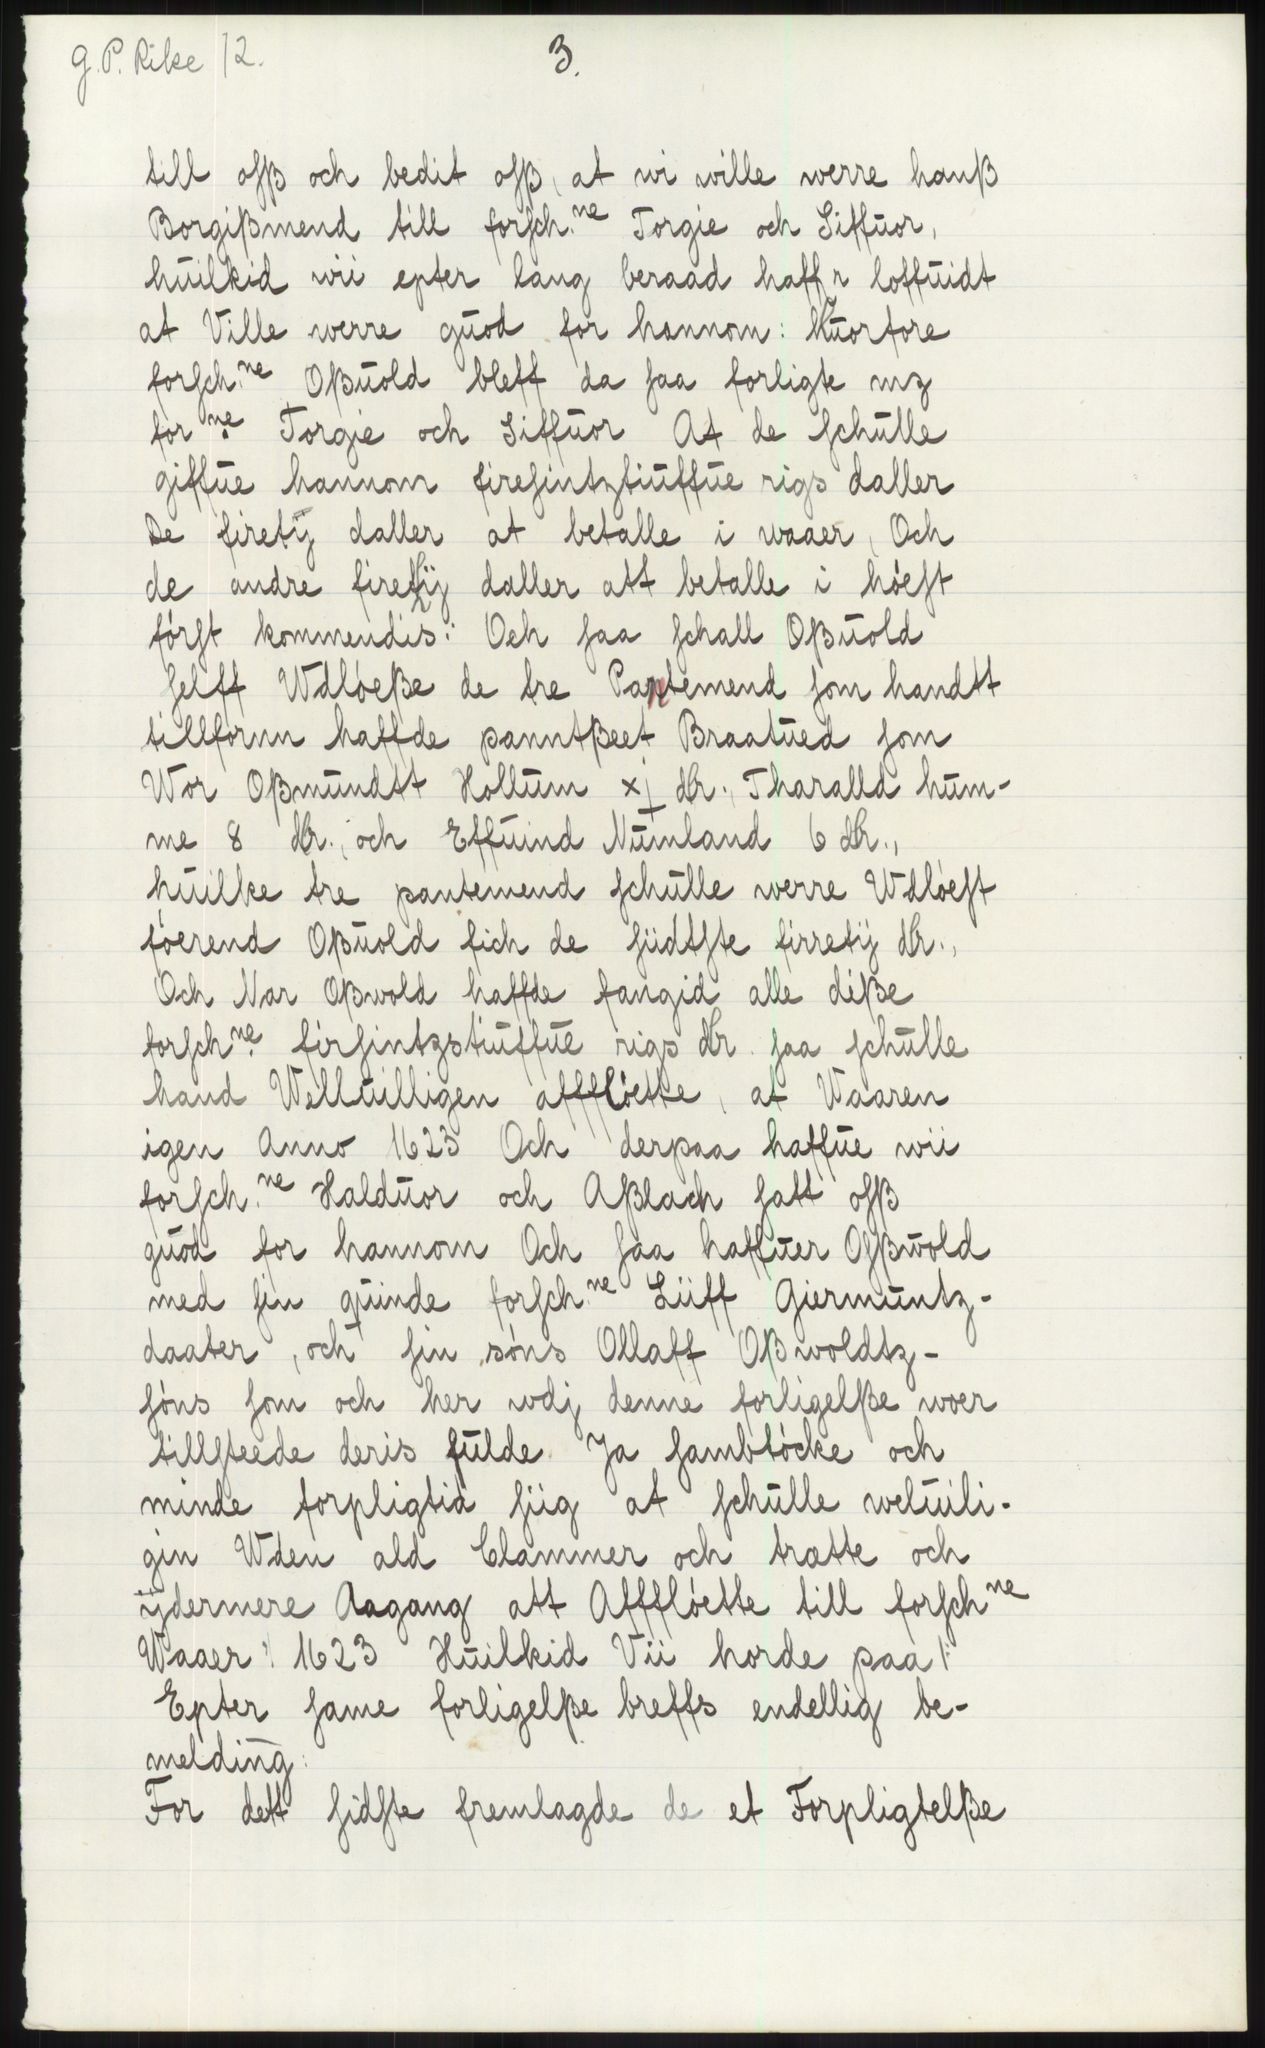 G. P. Rike /2.
3.
till ofß och bedit ofß, at wi wille werre hanß
Borgißmend till forſch.ne Torgie och Siffuor,
huilkid wii epter lang beraad haffr loffuidt
at Ville werre guod for hannom: Huorfore
forſch.ne Oßuold bleff da ſaa forligte mz
for ne Torgie och Siffuor At de ſchulle
giffue hannom fireſintztiuffue rigs daller
De firetÿ daller at betalle i waaer, Och
de andre firetÿ daller att betalle i höeſt
förſt kommendis: Och ſaa ſchall Oßuold
ſelff Wdlöeße de tre Pantemend ſom handtt
tillfornn haffde panntßeet Braatued ſom
Wor Oßmundtt Hollum xj dlr., Tharalld hum-
me 8 dlr., och Effuind Numland 6 dlr.,
huilke tre pantemend ſchulle werre Wdlöeſt
föerend Oßuold fich de ſiidtſte firretÿ dlr.,
Och Nar Oßwold haffde fangid alle diße
forſch.ne firſintzstiuffue rigs dlr. ſaa ſchulle
hand Welluilligen affflöette, at Waaren
igen Anno 1623 Och derpaa haffue wii
forſch.ne Halduor och Aßlach ſatt ofß
guod for hannom Och ſaa haffuer Oſßwold
med ſin quinde forſch.ne Liiff Giermuntz-
daater, och ſin söns Ollaff Oßwoldtz-
ſöns ſom och her wdj denne forligelße woer
tillſteede deris fulde Ja ſambtöcke och
minde forpligtid ſiig at ſchulle weluili-
gin Wden ald Clammer och trætte och
ÿdermere Aagang att Afffløette till forſch ne
Waaer: 1623 Huilkid Vii horde paa /:
Epter ſame forligelße breffs endellig be-
melding:
For dett ſidſte fremlagde de et Forpligtelße